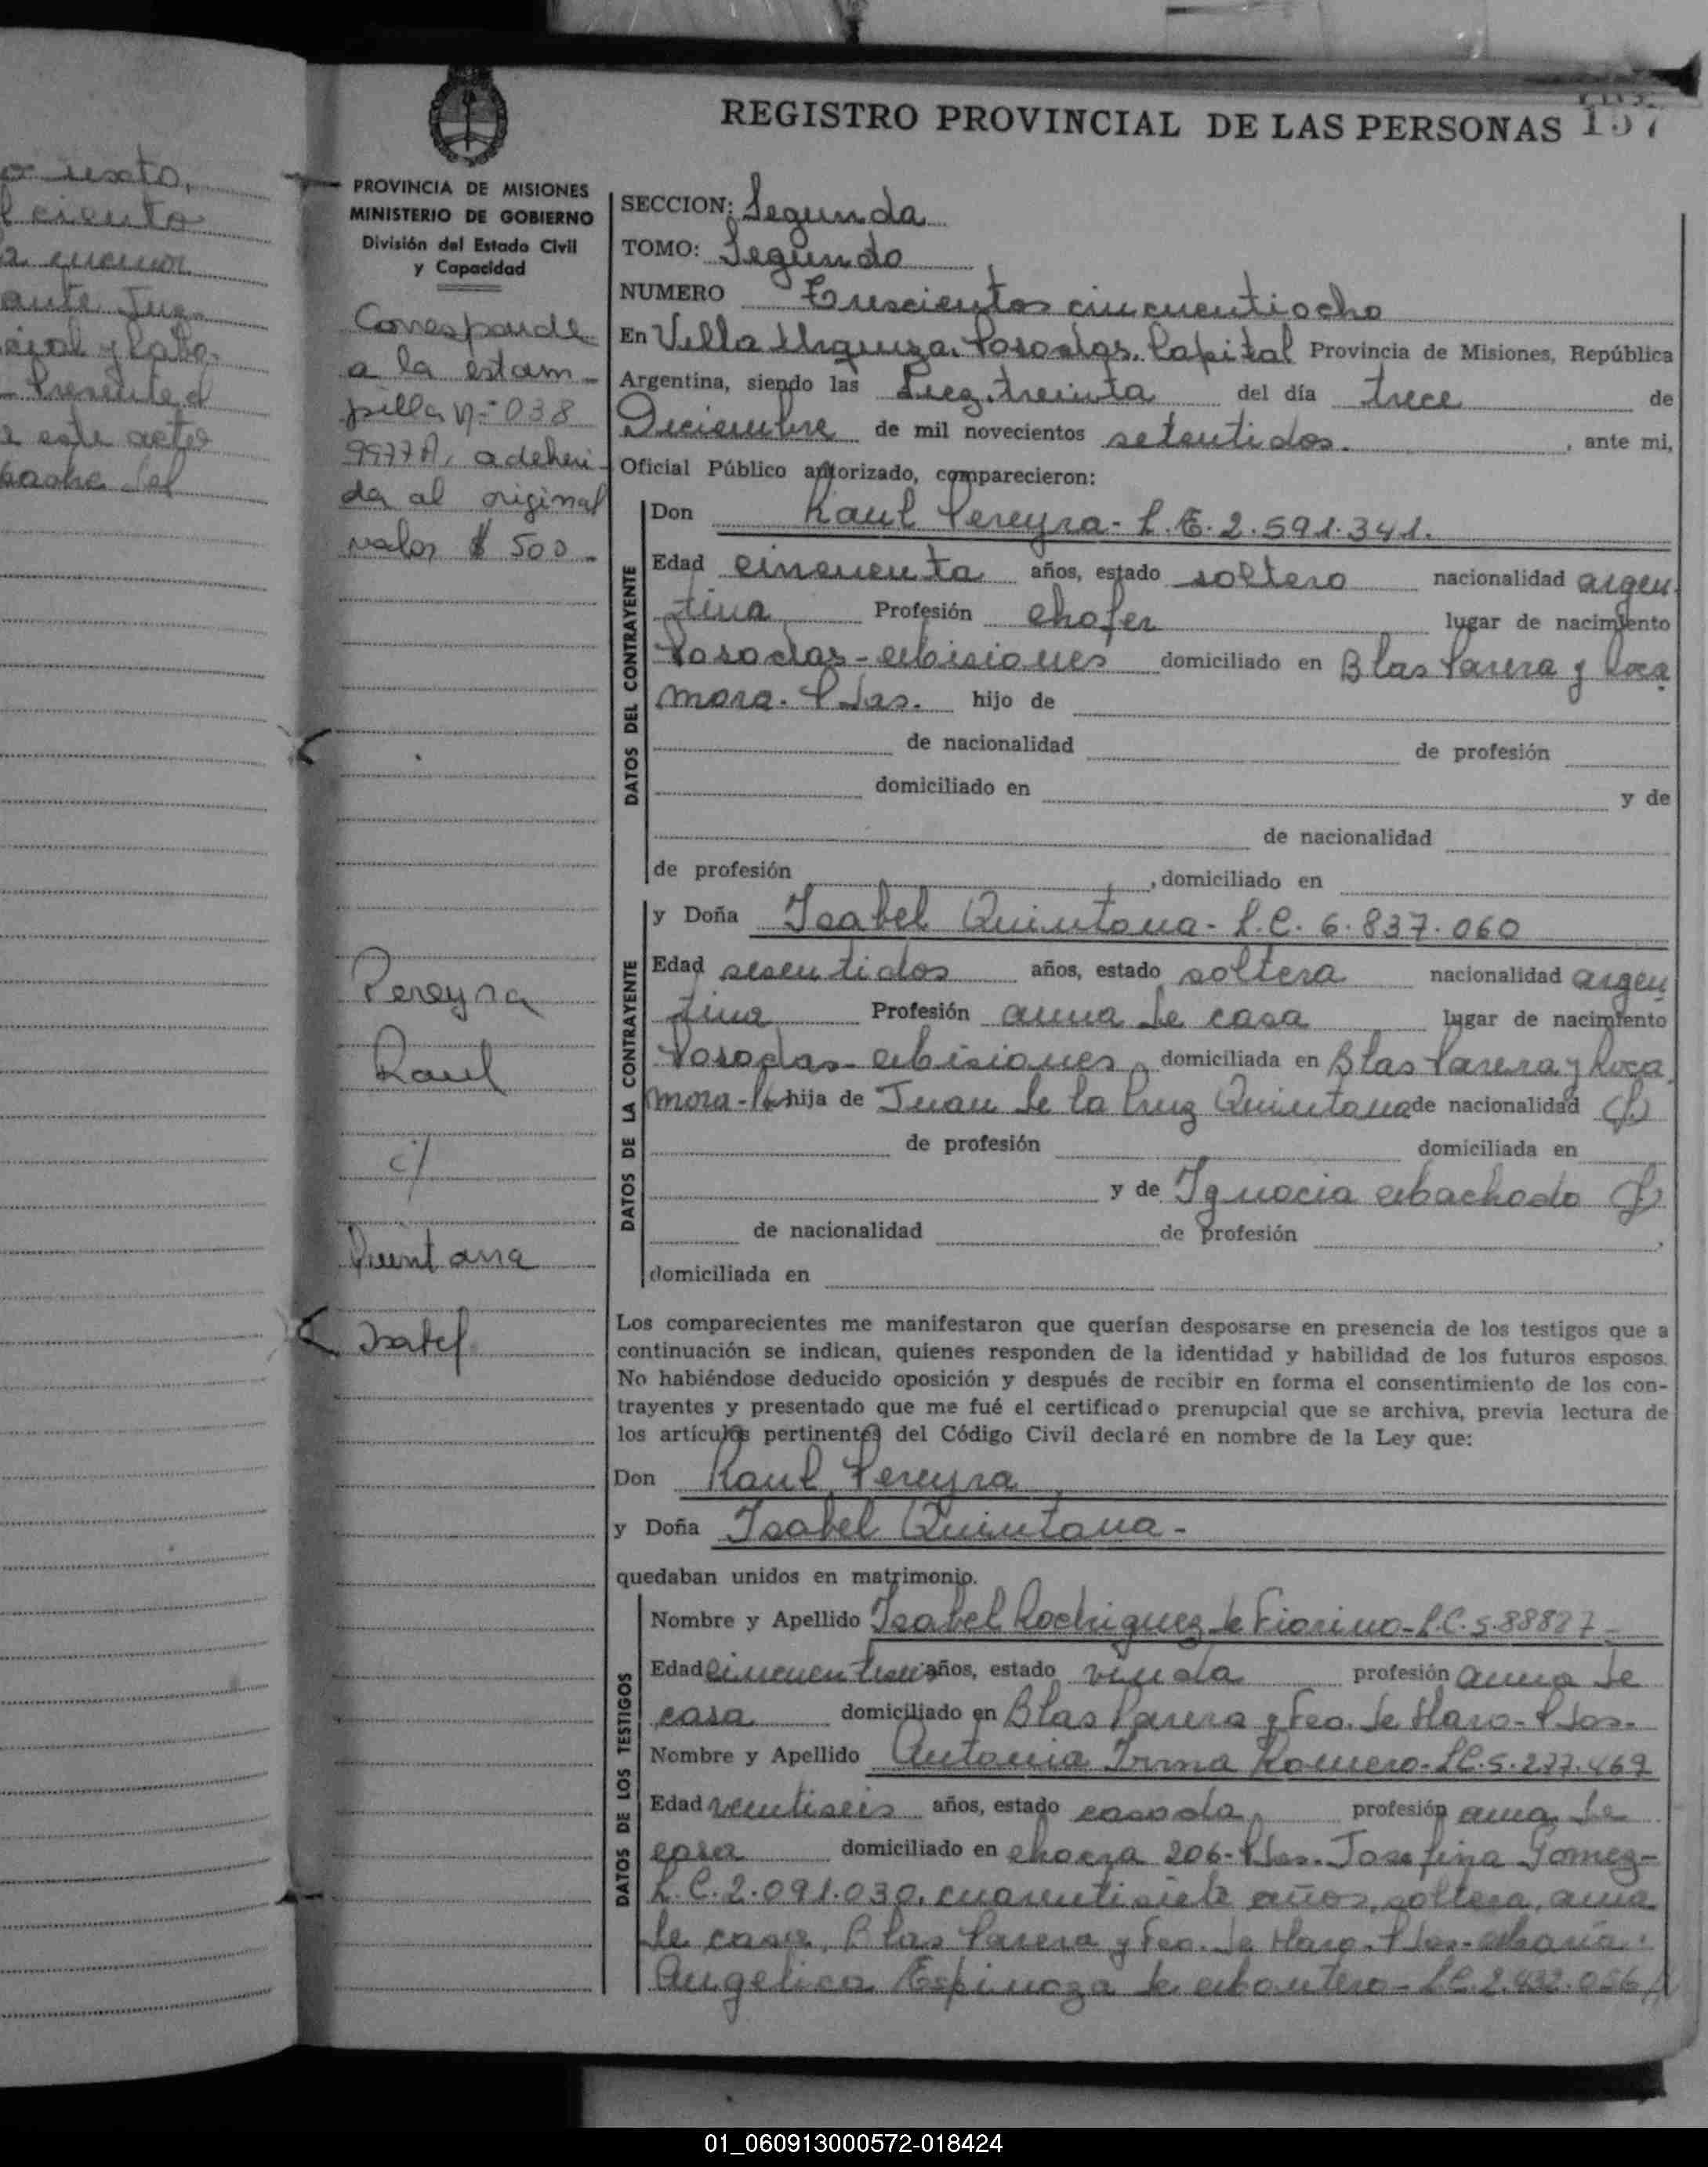 REGISTRO PROVINCIAL DE LAS PERSONAS 157
PROVINCIA DE MISIONES
MINISTERIO DE GOBIERNO
División del Estado Civil
y Capacidad
Corresponde
a la estam-
pilla Nº 038
9977A, adheri-
da al original
valor $ 500-
Pereyra
Raul
c/
Quintana
Isabel
SECCION: Segunda
TOMO: Segundo
NUMERO Trescientos cincuentiocho
En Villa Urquiza. Posadas. Capital Provincia de Misiones, República
Argentina, siendo las diez. treinta del día trece de
Diciembre de mil novecientos setentidos. , ante mi,
Oficial Público autorizado, comparecieron:
DATOS DEL CONTRAYENTE
Don Raul Pereyra- L.E. 2.591.341.
Edad cincuenta años, estado soltero nacionalidad argen
tina Profesión chofer lugar de nacimiento
Posadas-Misiones domiciliado en Blas Parera y Roca
mora. Pdas. hijo de
de nacionalidad de profesión
domiciliado en y de
de nacionalidad
de profesión , domiciliado en
DATOS DE LA CONTRAYENTE
y Doña Isabel Quintana- L.C. 6.837.060
Edad sesentidos años, estado soltera nacionalidad argen
tina Profesión ama de casa lugar de nacimiento
Posadas-Misiones domiciliada en Blas Parera y Roca
mora- hija de Juan de la Cruz Quintana de nacionalidad (f)
de profesión domiciliada en
y de Ignacia Machado (f)
de nacionalidad de profesión
domiciliada en
Los comparecientes me manifestaron que querían desposarse en presencia de los testigos que a
continuación se indican, quienes responden de la identidad y habilidad de los futuros esposos.
No habiéndose deducido oposición y después de recibir en forma el consentimiento de los con-
trayentes y presentado que me fué el certificado prenupcial que se archiva, previa lectura de
los artículos pertinentes del Código Civil declaré en nombre de la Ley que:
Don Raul Pereyra
y Doña Isabel Quintana-
quedaban unidos en matrimonio.
DATOS DE LOS TESTIGOS
Nombre y Apellido Isabel Rodriguez de Fiorino-L.C.5.88827-
Edad años, estado viuda profesión ama de
casa domiciliado en Blas Parera y Fco. de Haro-Pdas-
Nombre y Apellido Antonia Irma Romero-L.C.5.277.469
Edad veintiseis años, estado casada, profesión ama de
casa domiciliado en 206-Pdas. Josefina Gomez-
L.C.2.091.030, cuarentisiete años, soltera, ama
de casa, Blas Parera y Fco. de Haro-Pdas-Maria
Angelica Espinoza de Montero-L.C.2.432.056
01_060913000572-018424